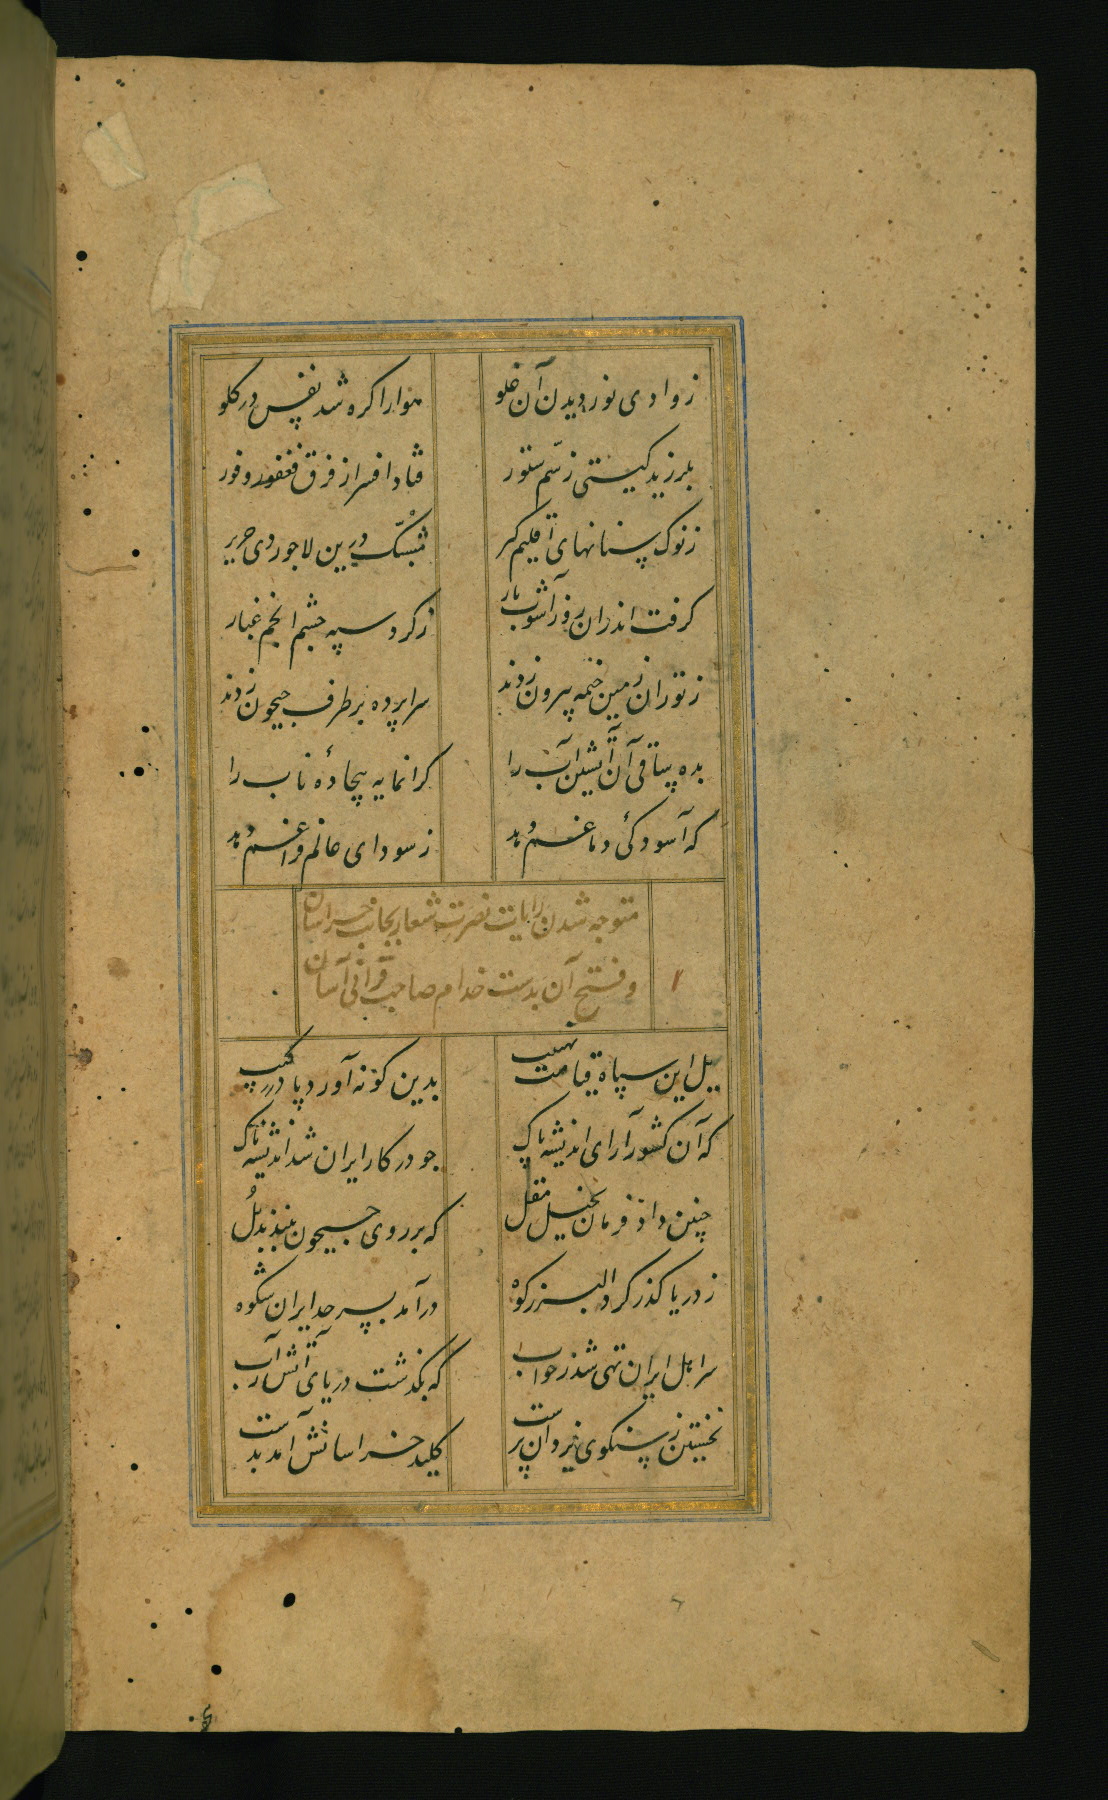 ز وادی نوردیدن آن غلو هوا را کره شد نفس در کلو
بلرزید کیتی ز سم ستور فتاد افسر از فرق فغفور و فور
ز نوک سنانهای اقلیم کیر مشبک درین لاجوردی حریر
کرفت اندران روز آشوب بار ز کرد سپه چشم انجم غبار
ز توران زمین خیمه بیرون زدند سراپرده بر طرف جیحون زدند
بده ساقی آن آتشین آب را کرانمایه بیجادهٔ ناب را
که آسودکئ دماغم دهد ز سودای عالم فراغم دهد
متوجه شدن رایات نصرت شعار بجانب خراسان
و فتح آن بدست خدام صاحب قرانی آسان
یل این سپاه قیامت نهیب بدین کونه آورد پا در رکیب
که آن کشور آرای اندیشه پاک جو در کار ایران شد اندیشه ناک
چنین داد فرمان بخیل مغل که بر روی جیحون ببندید پُل
ز دریا کذر کرد البرز کوه درآمد بسرحد ایران شکوه
سر اهل ایران تهی شد ز خواب که بکذشت دریای آتش ز آب
نخستین ز سنکوی یزدان پرست کلید خراسانش آمد بدست